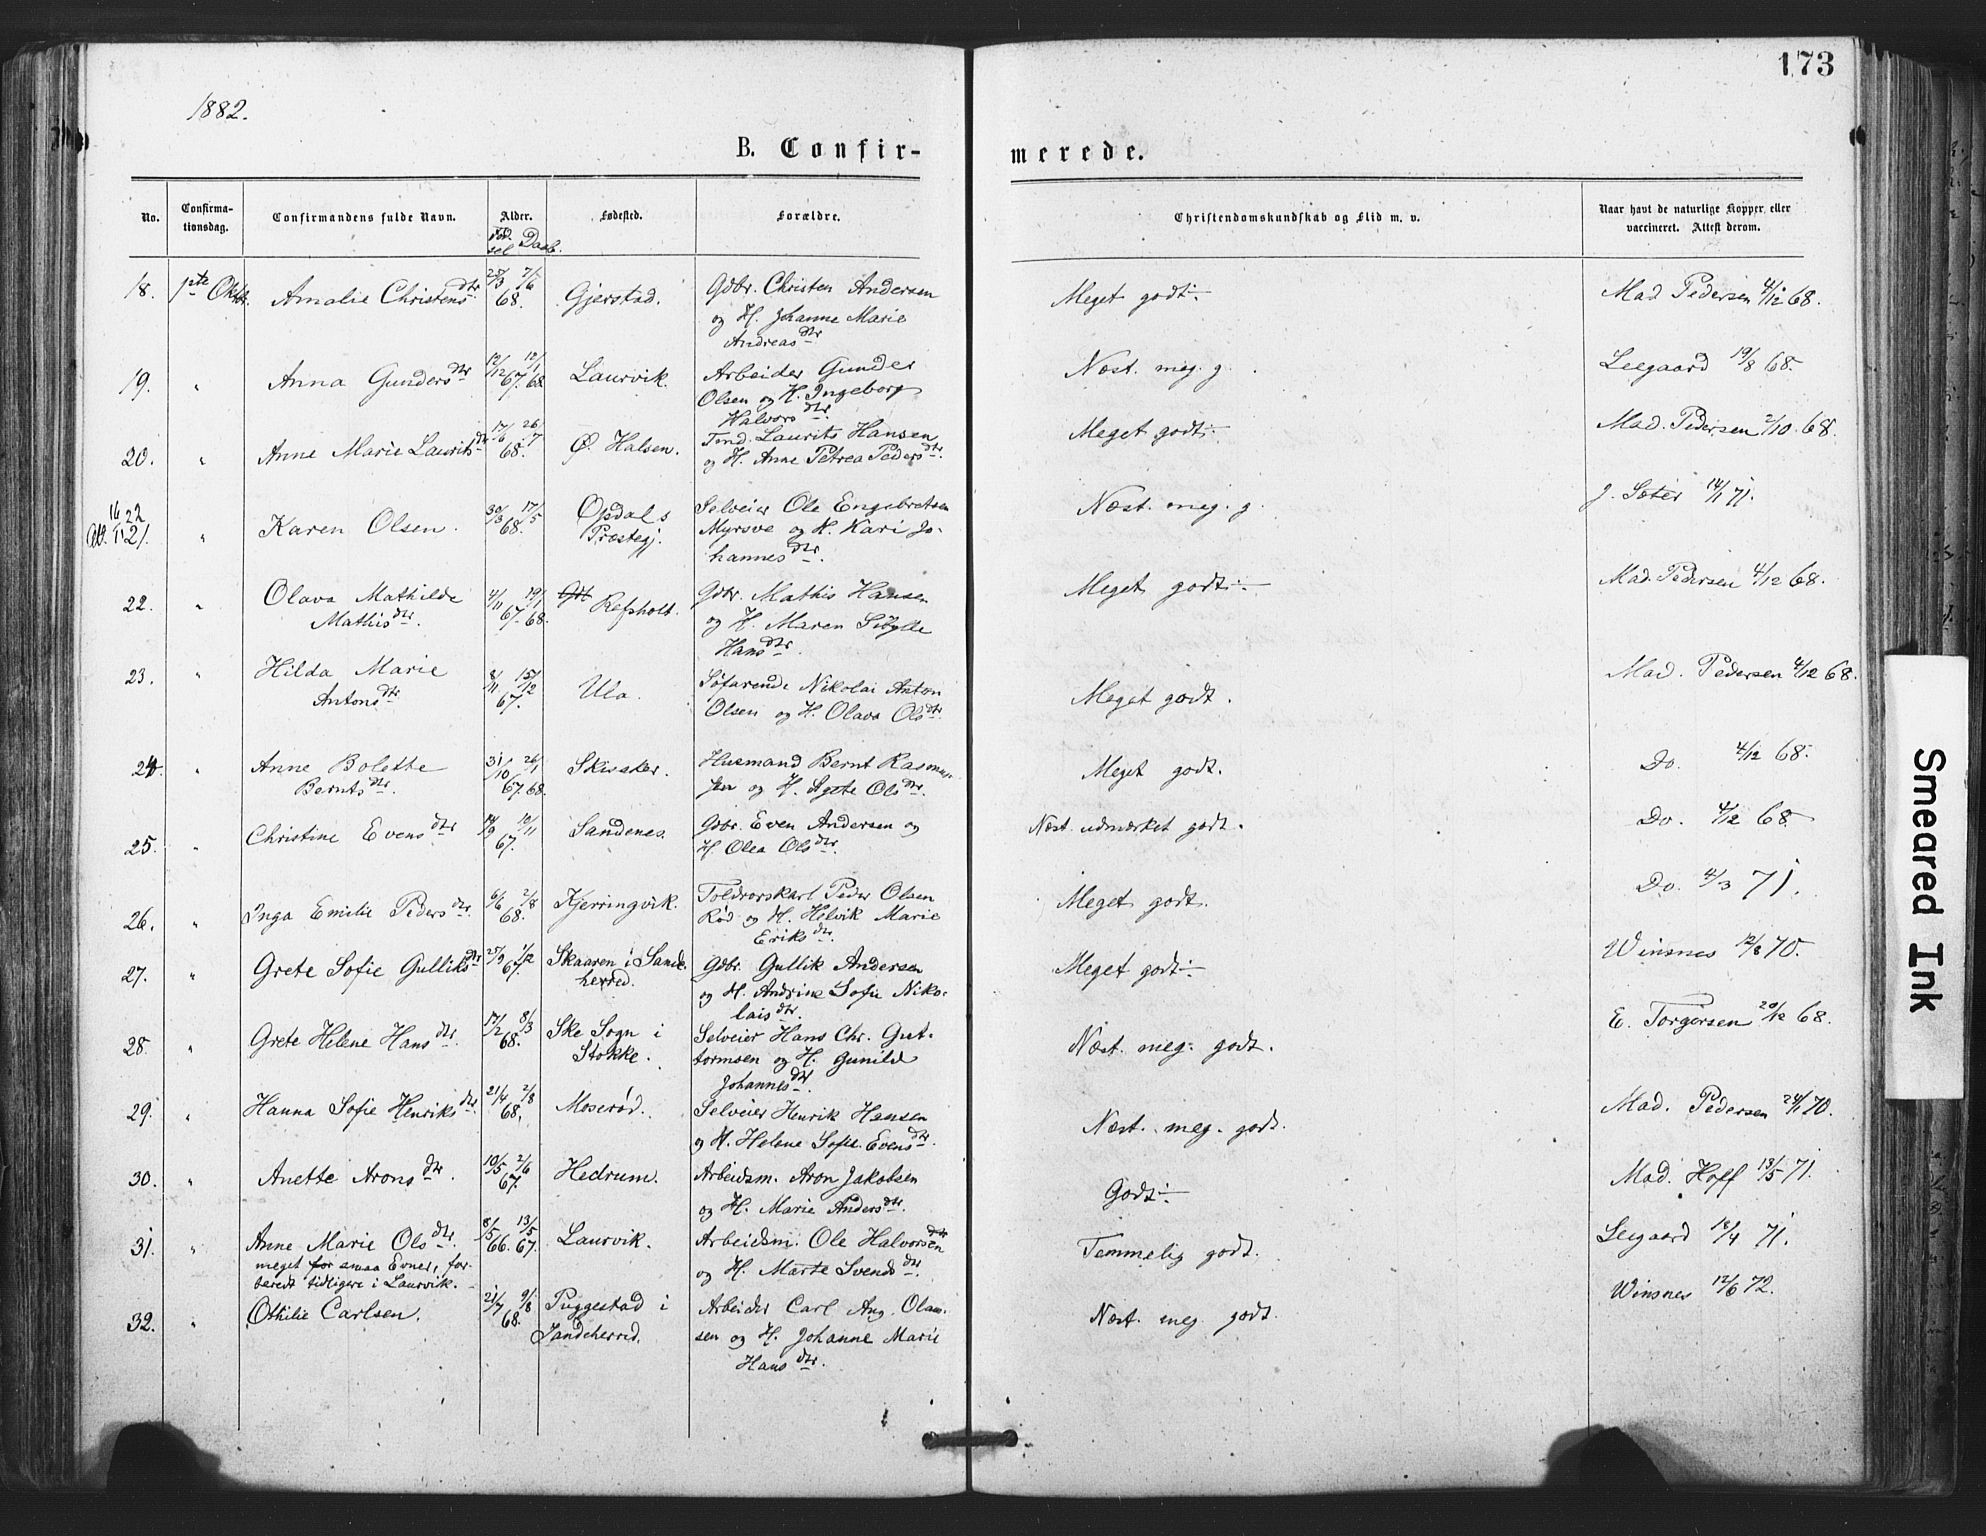 173
1882.
B. Confir-
merede.
No.
Confirma-
tionsdag.
Confirmandens fulde Navn.
Alder.
Fødested.
Forældre.
Christendomskundskab og Flid m. v.
Naar havt de naturlige Kopper, eller
vaccineret. Attest derom.
Fød-
sel Daab.
18. 1ste Oktbr. Amalie Christensdtr 25/3 7/6 68. Gjerstad. Gdbr. Christen Andersen
og H. Johanne Marie
Andreasdtr
Meget godt. Mad Pedersen 4/12 68.
19. " Anna Gundersdtr 12/12 67. 12/1 68 Laurvik. Arbeider Gunder
Olsen og H. Ingeborg
Halvorsdtr.
Næst. meg. g. Leegaard 19/8 68.
20. " Anne Marie Lauritsdtr 17/6 26/7 68. Ø. Halsen. Tønd. Laurits Hansen
og H. Anne Petrea Pedersdtr.
Meget godt. Mad. Pedersen 2/10. 68.
21. " Karen Olsen. 30/3 17/5 68. Opdals
Præstegj.
Selveier Ole Engebretsen
Myrsve og H. Kari Jo-
hannesdtr.
Næst. meg. g. J. Sæter 14/1 71.
22. " Olava Mathilde
Mathisdtr.
4/11 67. 19/1 68. Refsholt. Gdbr. Mathis Hansen
og H. Maren Sibylle
Hansdtr.
Meget godt. Mad. Pedersen 4/12 68.
23. " Hilda Marie
Antonsdtr
8/11 15/12 67. Ula. Søfarende Nikolai Anton
Olsen og H. Olava Olsdtr
Meget godt. Mad. Pedersen 4/12 68.
24. " Anne Bolette
Berntsdtr.
31/10 67. 26/1 68. Skisaker. Husmand Bernt Rasmus-
sen og H. Agete Olsdtr.
Meget godt. Do. 4/12 68.
25. " Christine Evensdtr 14/9 10/11 67. Sandenes. Gdbr. Even Andersen og
H Olea Olsdtr.
Næst. udmærket godt. Do. 4/12 68.
26. " Inga Emilie Pedersdtr. 6/6 2/8 68. Kjerringvik. Toldrorskarl Peder Olsen
Rød og H. Helvik Marie
Eriksdtr.
Meget godt. Do. 4/3 71.
27. " Grete Sofie Gulliksdtr 25/9 1/12 67. Skaaren i Sande-
herred.
Gdbr. Gullik Andersen
og H. Andrine Sofie Niko-
laisdtr.
Meget godt. Winsnes 12/8 70.
28. " Grete Helene Hansdtr. 17/2 8/3 68. Ske Sogn i
Stokke.
Selveier Hans Chr. Gut-
tormsen og H. Gunild
Johannesdtr.
Næst. meg. godt. E. Torgersen 20/12 68.
29. " Hanna Sofie Henriksdtr. 21/4 2/8 68. Moserød. Selveier Henrik Hansen
og H. Helene Sofie Evensdtr.
Næst. meg. godt. Mad. Pedersen 24/1 70.
30. " Anette Aronsdtr. 10/5 2/6 67. Hedrum. Arbeidsm. Aron Jakobsen
og H. Marie Andersdtr.
Godt. Mad. Hoff 13/5 71.
31. " Anne Marie Olsdtr. 8/5 66. 13/5 67. Laurvik. Arbeidsm. Ole Halvorsen
og H. Marte Svendsdtr.
meget smaa Evner, for-
beredt tidligere i Laurvik.
Temmelig godt. Leegaard 18/4 71.
32. " Othilie Carlsen. 21/7 9/8 68. Puggestad i
Sandeherred.
Arbeider Carl Aug. Olaus-
sen og H. Johanne Marie
Hansdtr.
Næst. meg godt. Winsnes 12/6 72.
Smeared Ink